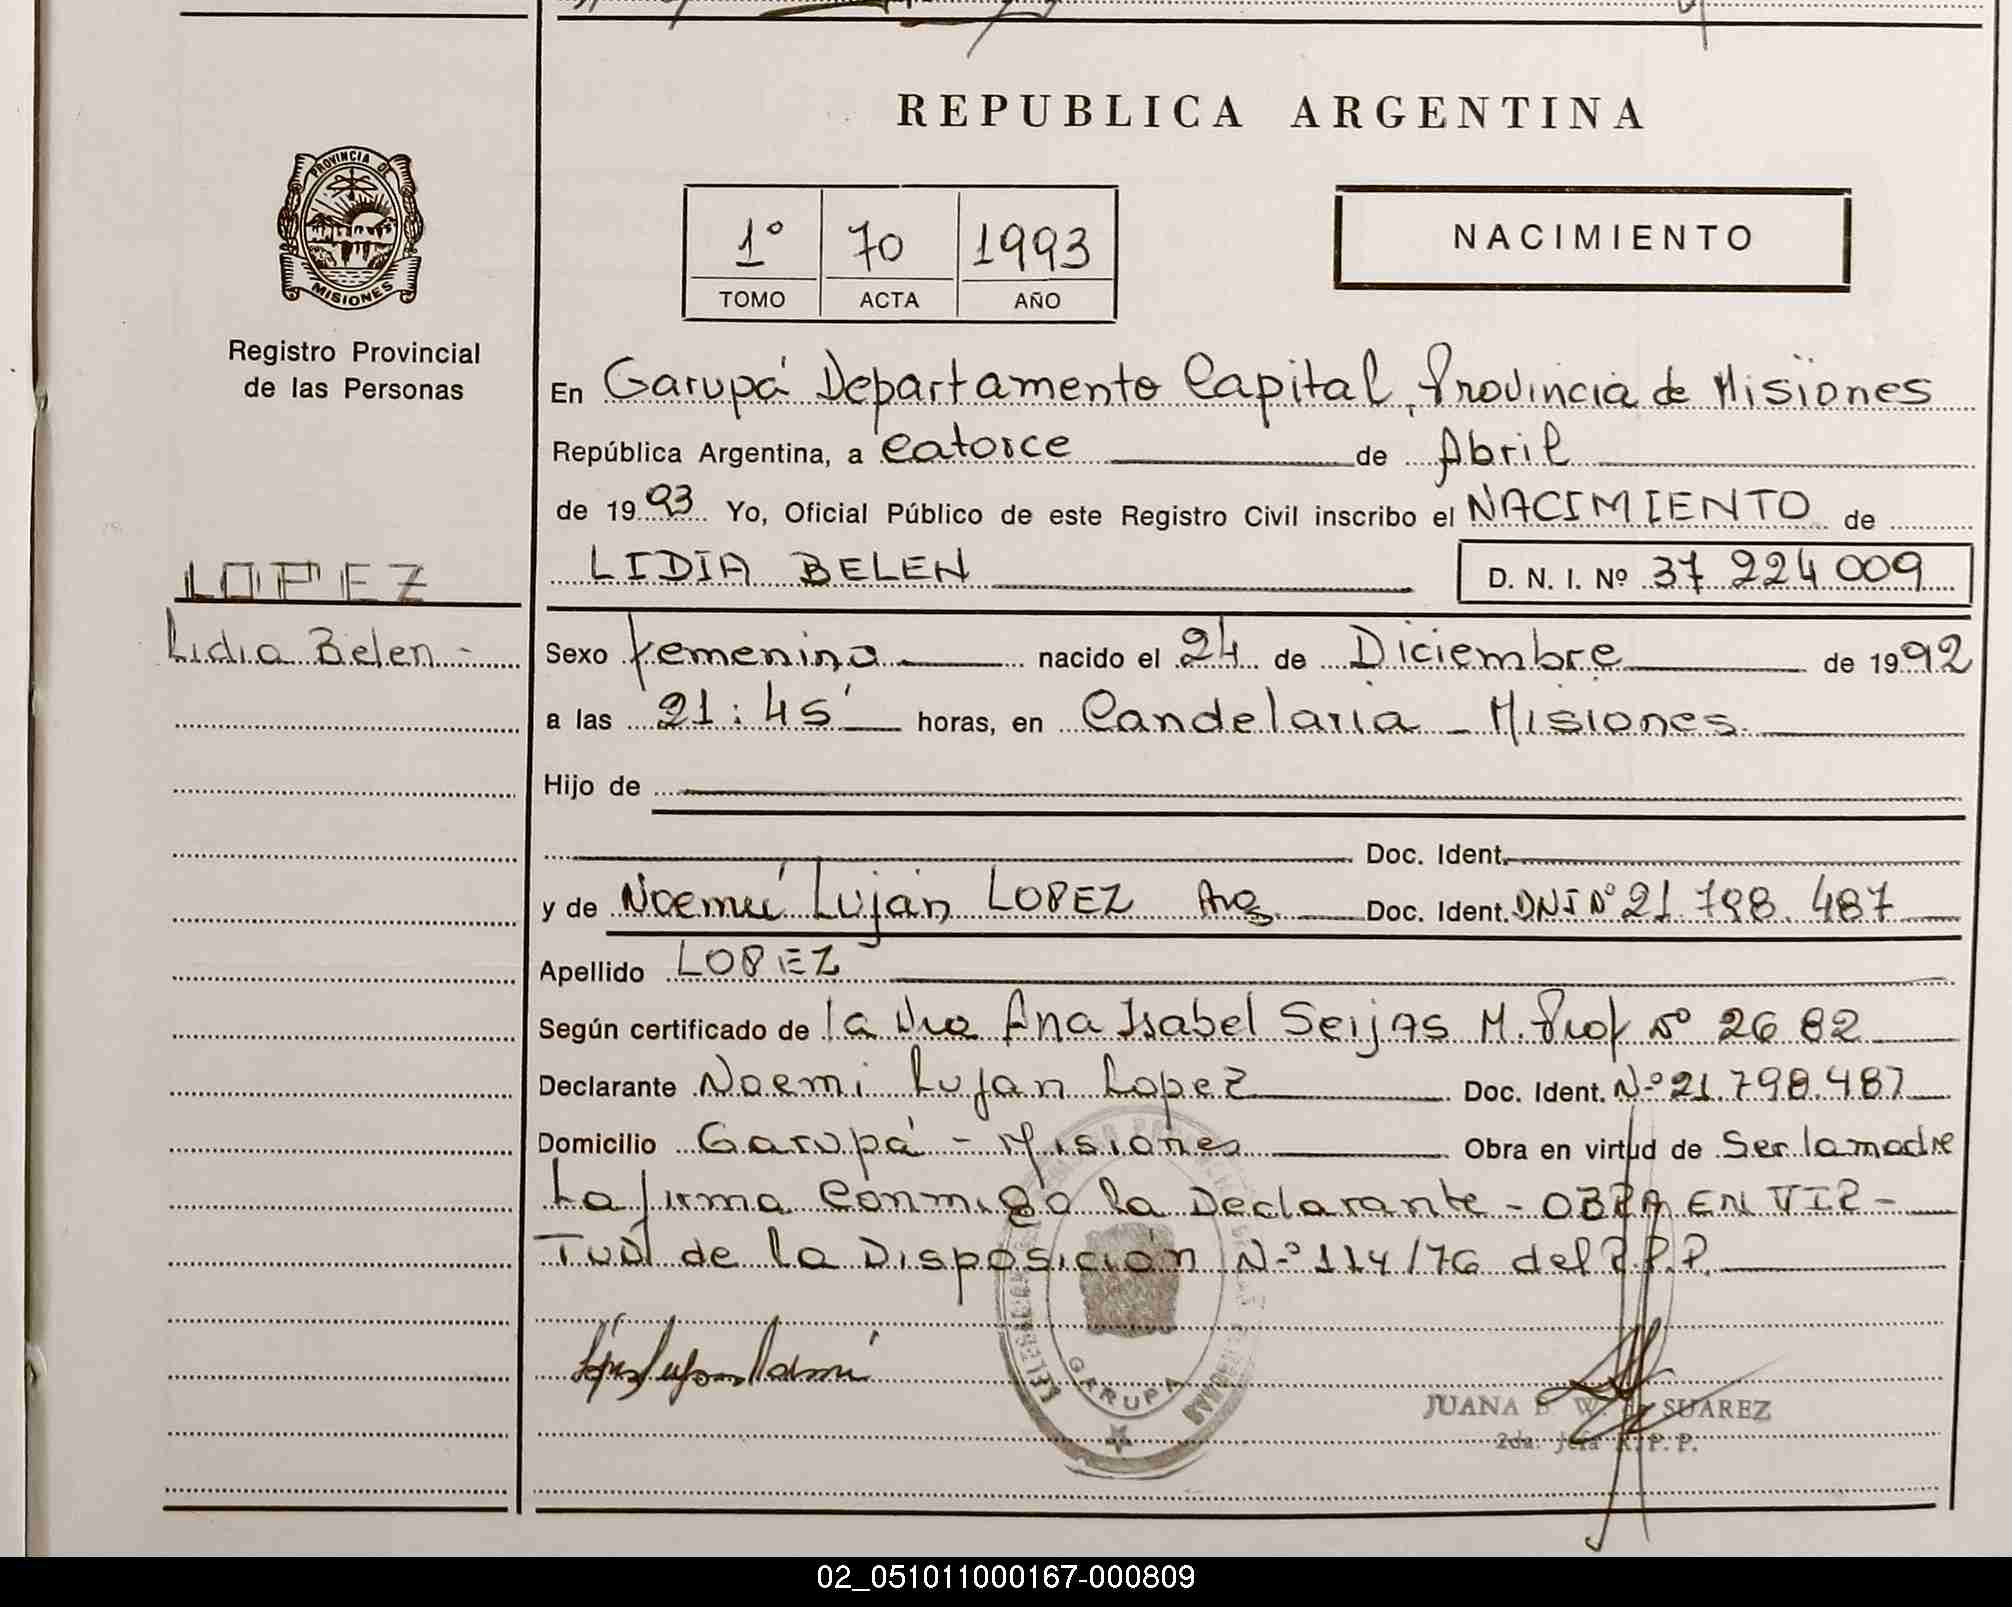 REPUBLICA ARGENTINA
PROVINCIA DE
MISIONES
Registro Provincial
de las Personas
1º 70 1993
TOMO ACTA AÑO
NACIMIENTO
En Garupá Departamento Capital, Provincia de Misiones
República Argentina, a Catorce de Abril
de 1993 Yo, Oficial Público de este Registro Civil inscribo el NACIMIENTO de
LIDIA BELEN D. N. I. Nº 37 224 009
LOPEZ
Lidia Belen -
Sexo femenino nacido el 24 de Diciembre de 1992
a las 21:45' horas, en Candelaria - Misiones
Hijo de
Doc. Ident.
y de Noemí Luján LOPEZ Arg. Doc. Ident. DNI Nº 21 798 487
Apellido LOPEZ
Según certificado de la Dra Ana Isabel Seijas M. Prof Nº 2682
Declarante Noemi Lujan Lopez Doc. Ident. Nº 21.798.487
Domicilio Garupá - Misiones Obra en virtud de Ser la madre
La firma Conmigo la Declarante - OBRA EN VIR-
TUD de la Disposición Nº 114/76 del R.P.P.
GARUPA
JUANA SUAREZ
2da. Jefa R. P. P.
02_051011000167-000809